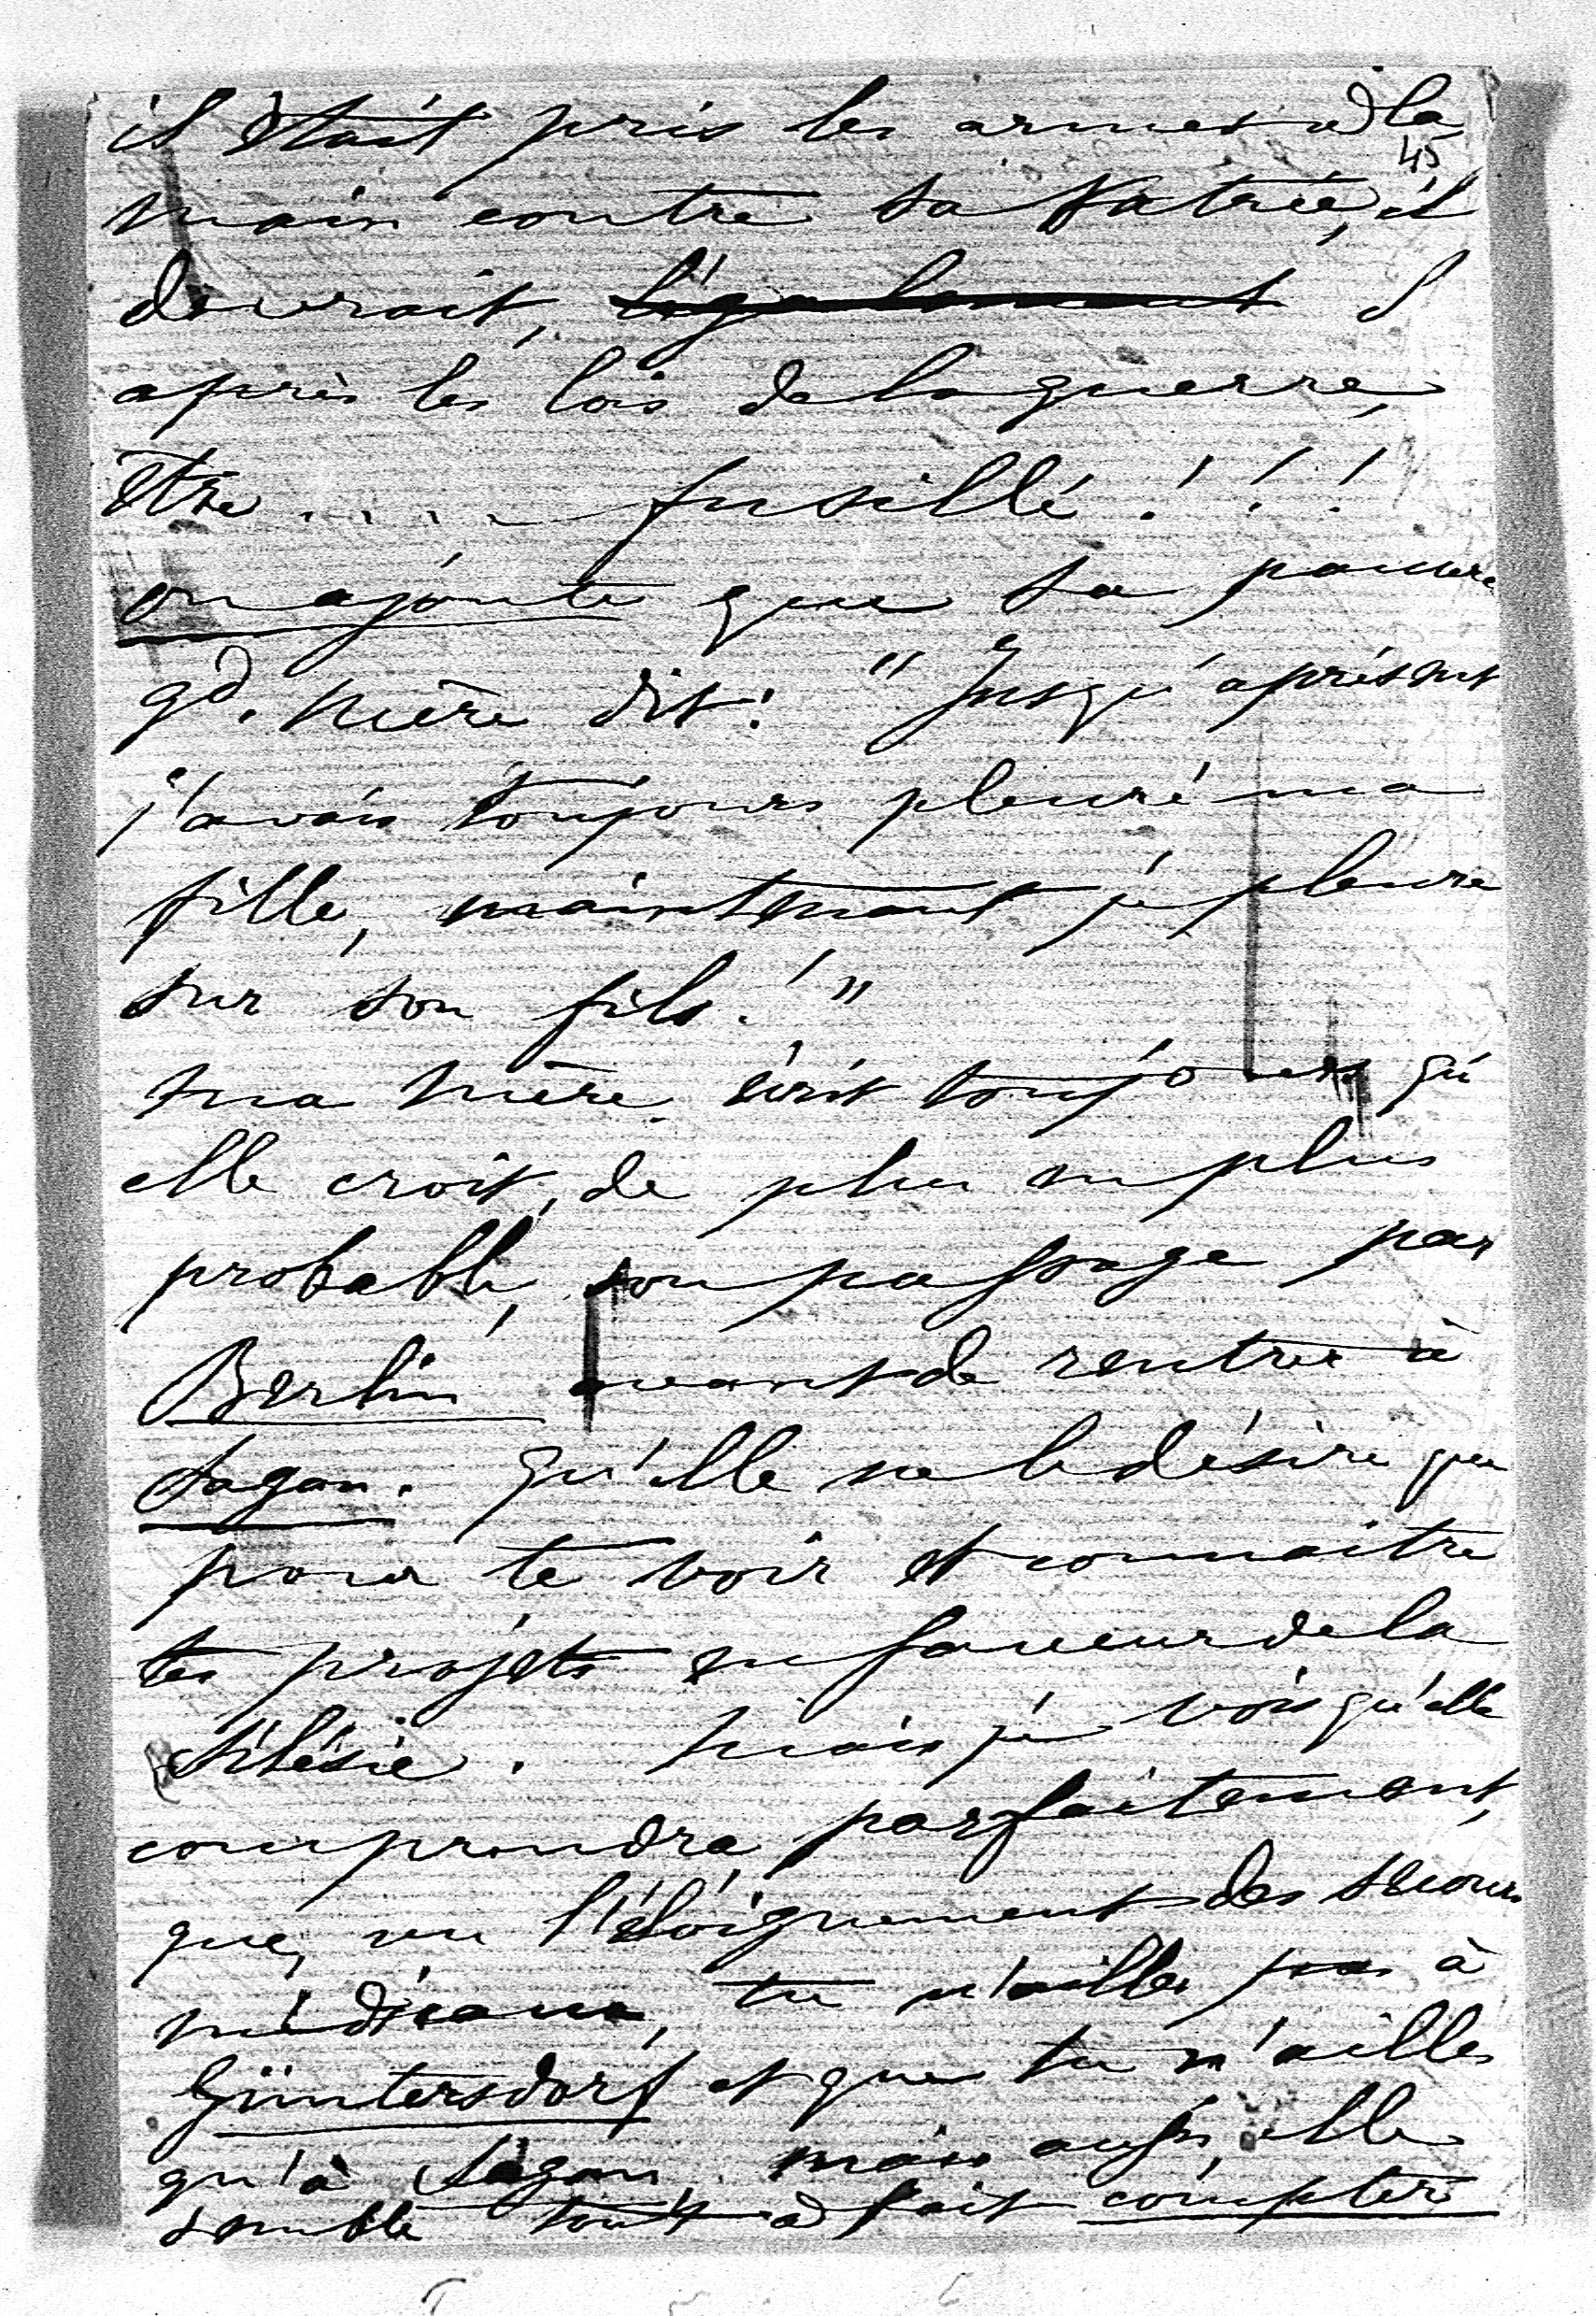 il était pris les armes à la
45
main contre sa Patrie, il
devrait, légalement d
après les lois de la guerre,
être ..... fusillé! ! !
on ajoute que sa pauvre
gd. mère dit: "Jusqu'à présent
j'avais toujours pleuré ma
fille, maintenant je pleure
sur son fils!"
ma mère écrit toujours qu'
elle croit, de plus en plus
probable, son passage par
Berlin avant de rentrer à
Sagan. qu'elle ne le désire que
pour te voir et connaitre
tes projets en faveur de la
Silésie. Mais je vois qu'elle
comprendra parfaitement,
que, vu l'éloignement des secours
médicaux, tu n'ailles pas à
Güntersdorf et que tu n'ailles
qu'à Sagan, mais aussi elle
semble tout à fait compter